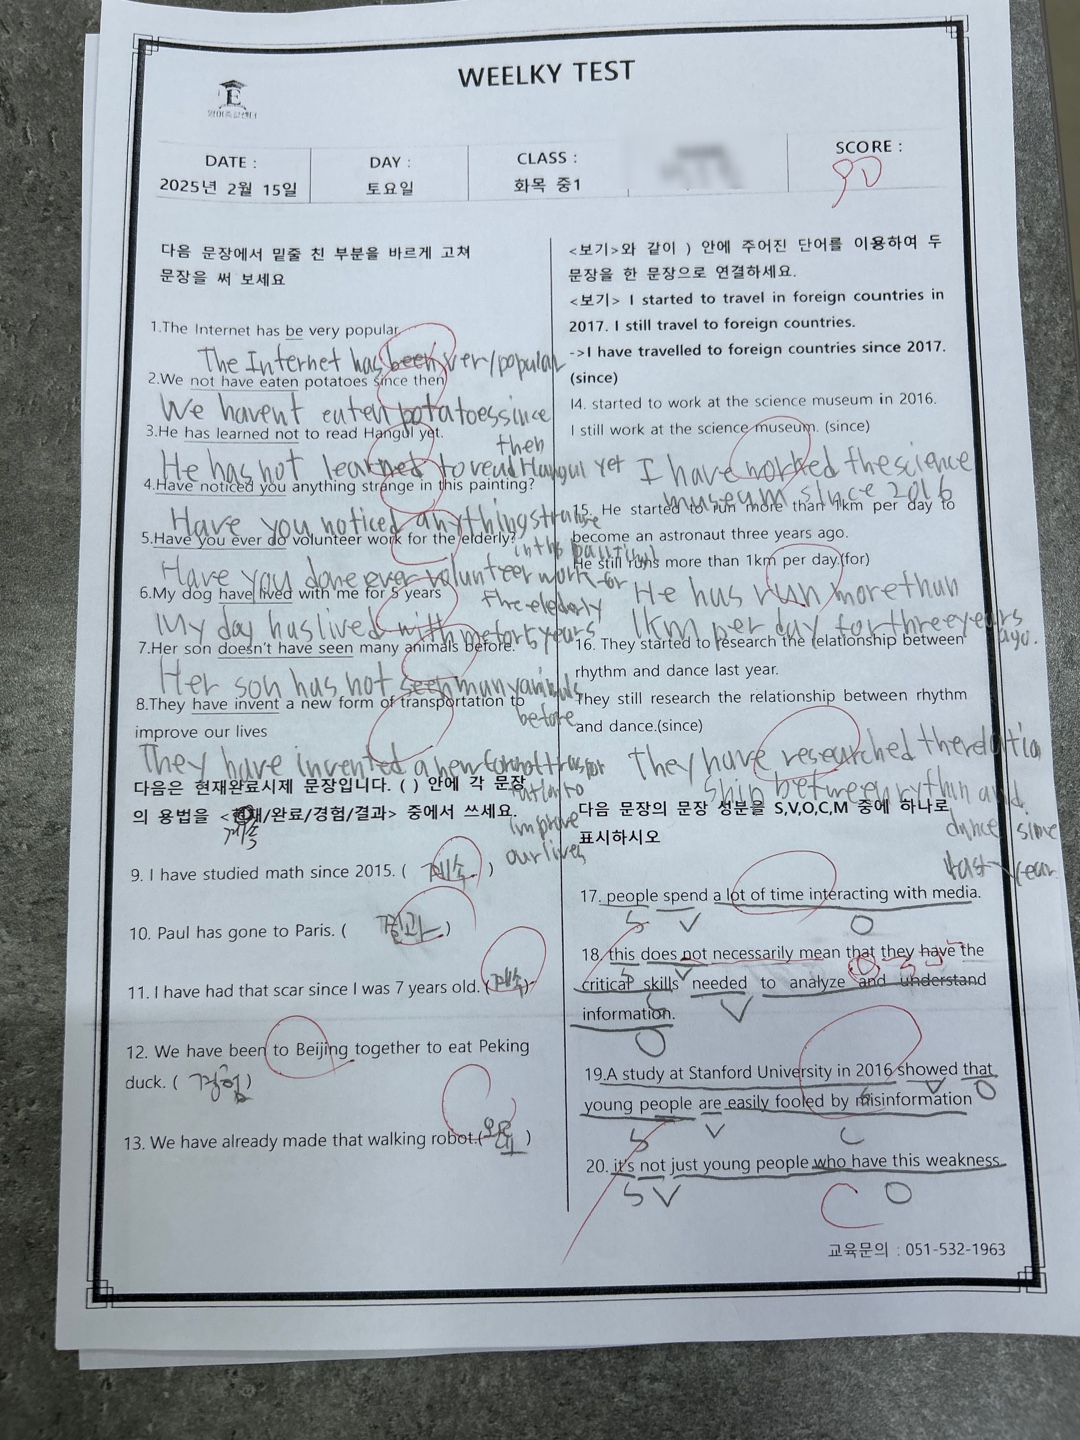 WEELKY TEST
E
DATE :
2025년 2월 15일
DAY :
토요일
CLASS :
화목 중1
SCORE :
90
다음 문장에서 밑줄 친 부분을 바르게 고쳐
문장을 써 보세요
1.The Internet has be very popular
The Internet has been very popular
2.We not have eaten potatoes since then
We haven't eaten potatoes since
then
3.He has learned not to read Hangul yet.
He has not learned to read Hangul yet
4.Have noticed you anything strange in this painting?
Have you noticed anything strange
in this painting
5.Have you ever do volunteer work for the elderly?
Have you done ever volunteer work for
the elederly
6.My dog have lived with me for 5 years
My dog has lived with me for 5 years
7.Her son doesn't have seen many animals before.
Her son has not seen many animals
before
8.They have invent a new form of transportation to
improve our lives
They have invented a new form of
to
improve
our lives
다음은 현재완료시제 문장입니다. ( ) 안에 각 문장
의 용법을 <현재/완료/경험/결과> 중에서 쓰세요.
계속
9. I have studied math since 2015. ( 계속 )
10. Paul has gone to Paris. ( 결과 )
11. I have had that scar since I was 7 years old. (계속)
12. We have been to Beijing together to eat Peking
duck. ( 경험 )
13. We have already made that walking robot.(완료 )
<보기>와 같이 ) 안에 주어진 단어를 이용하여 두
문장을 한 문장으로 연결하세요.
<보기> I started to travel in foreign countries in
2017. I still travel to foreign countries.
->I have travelled to foreign countries since 2017.
(since)
I4. started to work at the science museum in 2016.
I still work at the science museum. (since)
I have worked the science
museum since 2016
15. He started to run more than 1km per day to
become an astronaut three years ago.
He still runs more than 1km per day.(for)
He has run more than
1km per day for three years
ago.
16. They started to research the relationship between
rhythm and dance last year.
They still research the relationship between rhythm
and dance.(since)
They have researched the relatio
ship between rythm and
dance since
last year
다음 문장의 문장 성분을 S,V,O,C,M 중에 하나로
표시하시오
17. people spend a lot of time interacting with media.
S V O
18. this does not necessarily mean that they have the
S V O S V
critical skills needed to analyze and understand
S V
information.
O
19.A study at Stanford University in 2016 showed that
S V O
young people are easily fooled by misinformation
S V C
20. it's not just young people who have this weakness.
S V C O
교육문의 : 051-532-1963